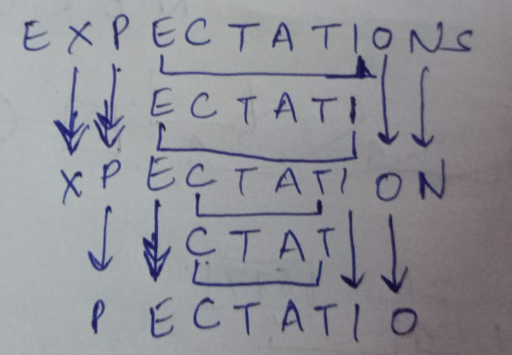 E X P E C T A T I O N S
E C T A T I
X P E C T A T I O N
C T A T
P E C T A T I O